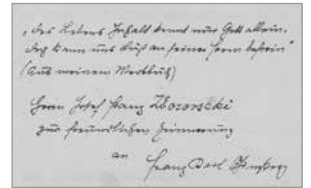 „Des Lebens Inhalt kennt nur Gott allein.
doch kann uns Kunst an seiner Form befrein“
(Aus meinem Merkbuch)
Herrn Josef Franz Zborowski
zur freundlichen Erinnerung
an
Franz Karl Ginzkey